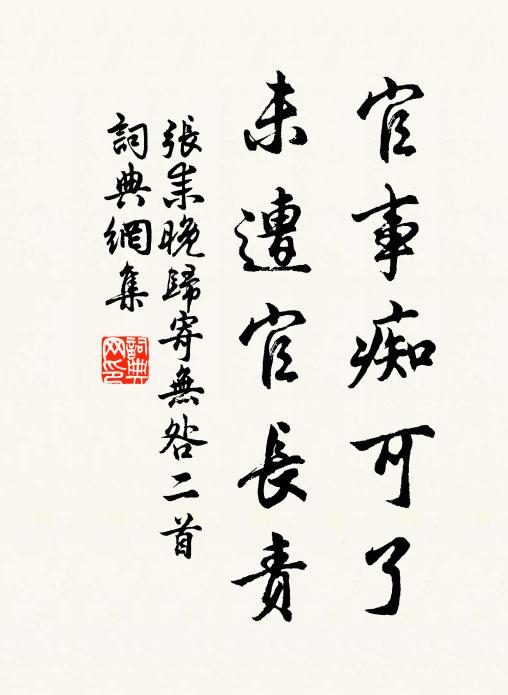 官事痴可了
未遭官長責
張耒晚歸寄無咎二首
詞典網集
詞典網印